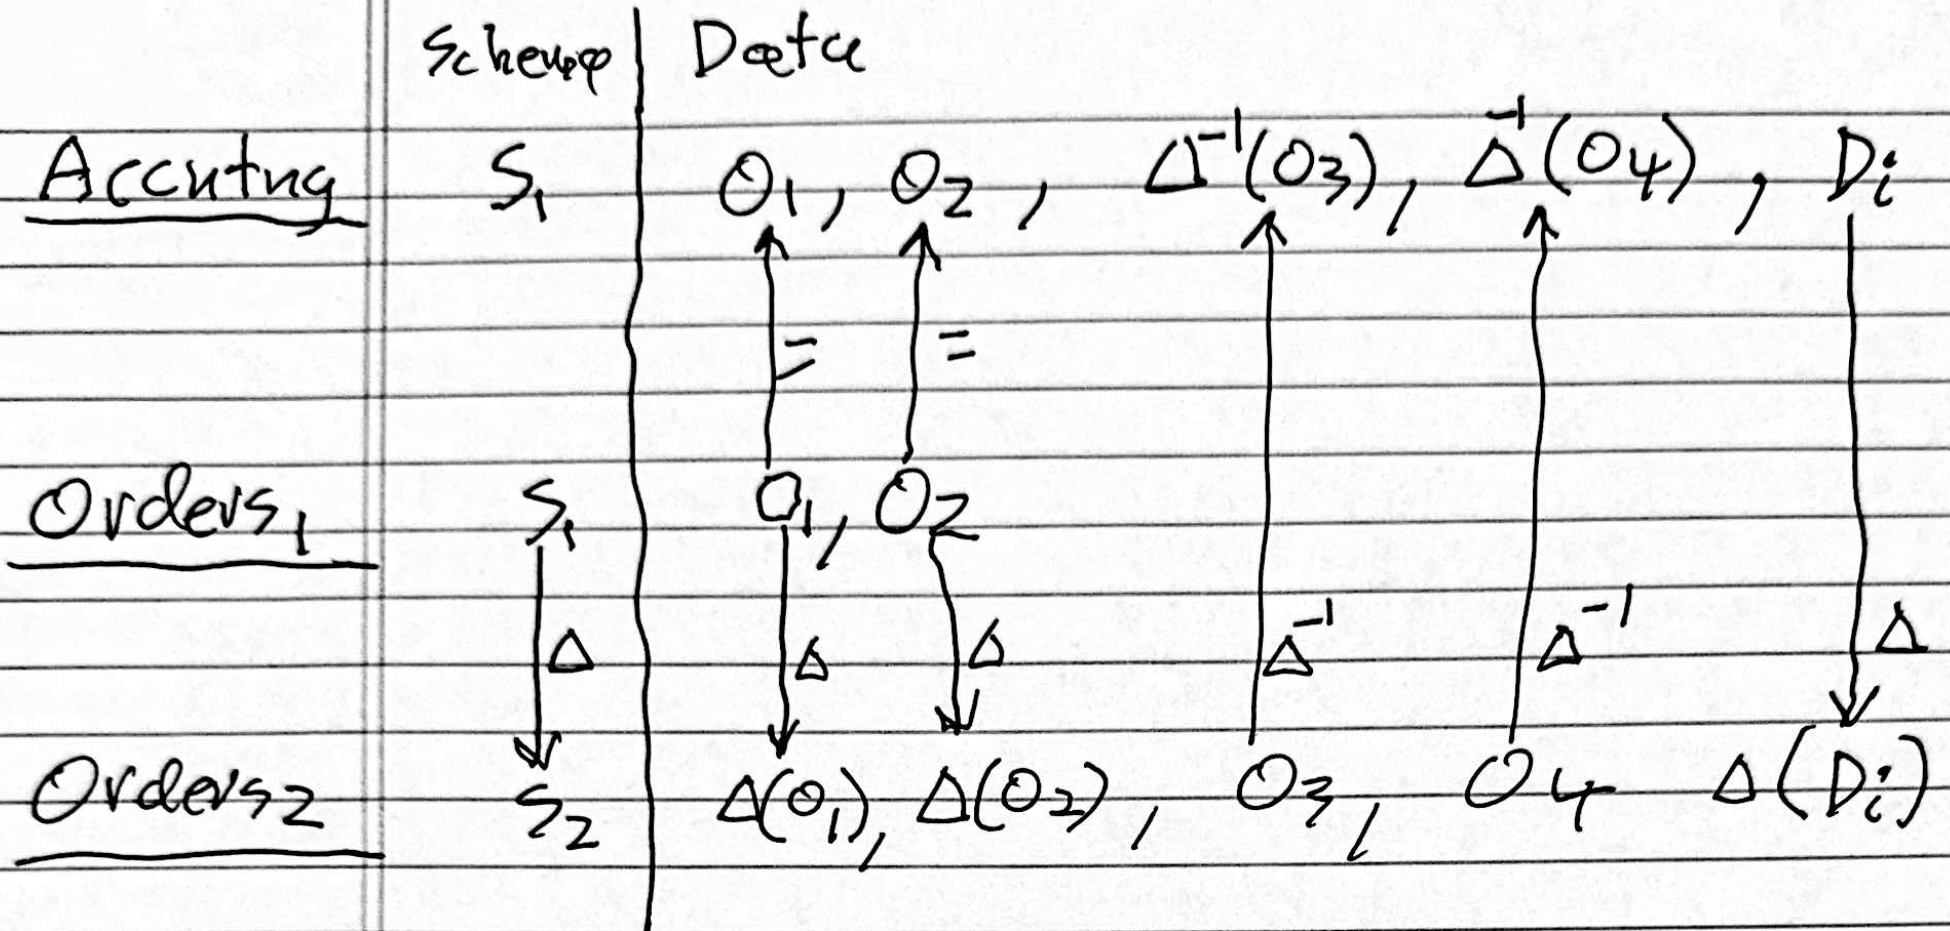 Schema Data
Accntng S₁ O₁, O₂, Δ⁻¹(O₃), Δ⁻¹(O₄), Dᵢ
= =
Orders₁ S₁ O₁, O₂
Δ Δ Δ Δ⁻¹ Δ⁻¹ Δ
Orders₂ S₂ Δ(O₁), Δ(O₂), O₃, O₄ Δ(Dᵢ)